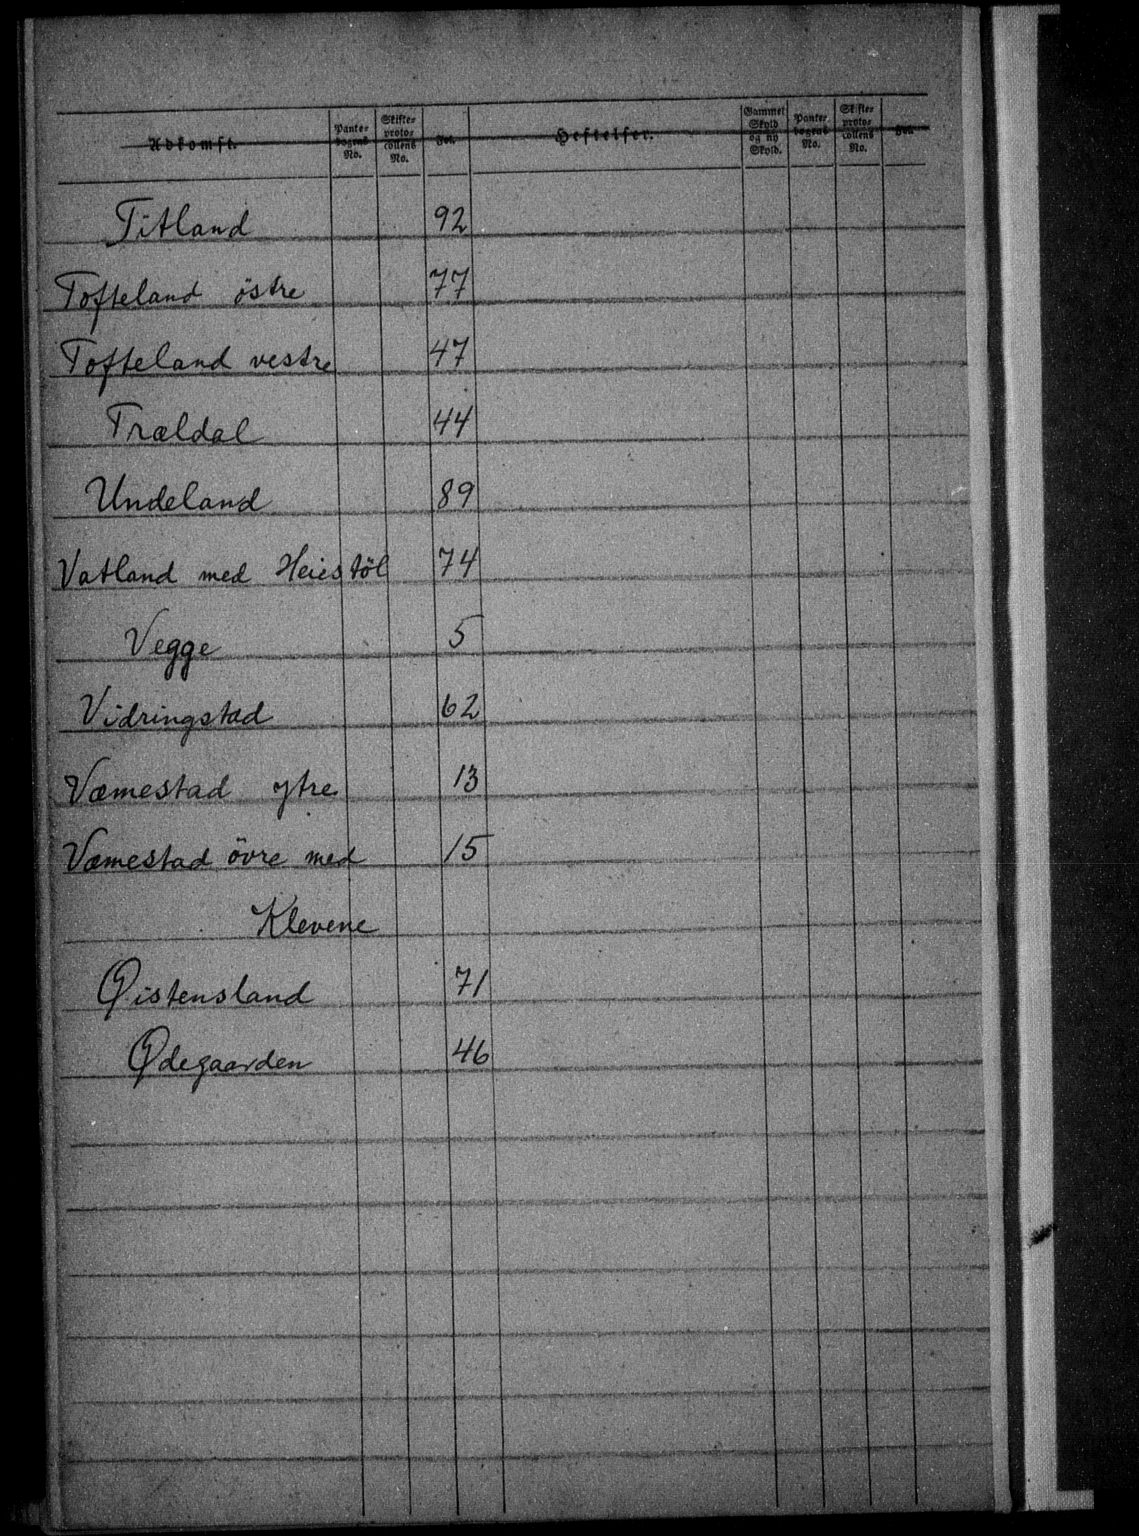 Adkomst. Pante-bogens No. Skifte-proto-collens No. Fol. Heftelser. Gammel Skyld og ny Skyld. Pante-bogens No. Skifte-proto-collens No. Fol.
Titland 92
Tofteland östre 77
Tofteland vestre 47
Træeldal 44
Undeland 89
Vatland med Heiestöl 74
Vegge 5
Vidringstad 62
Væmestad ytre 13
Væmestad övre med 15
Klevene
Øistensland 71
Ødegaarden 46